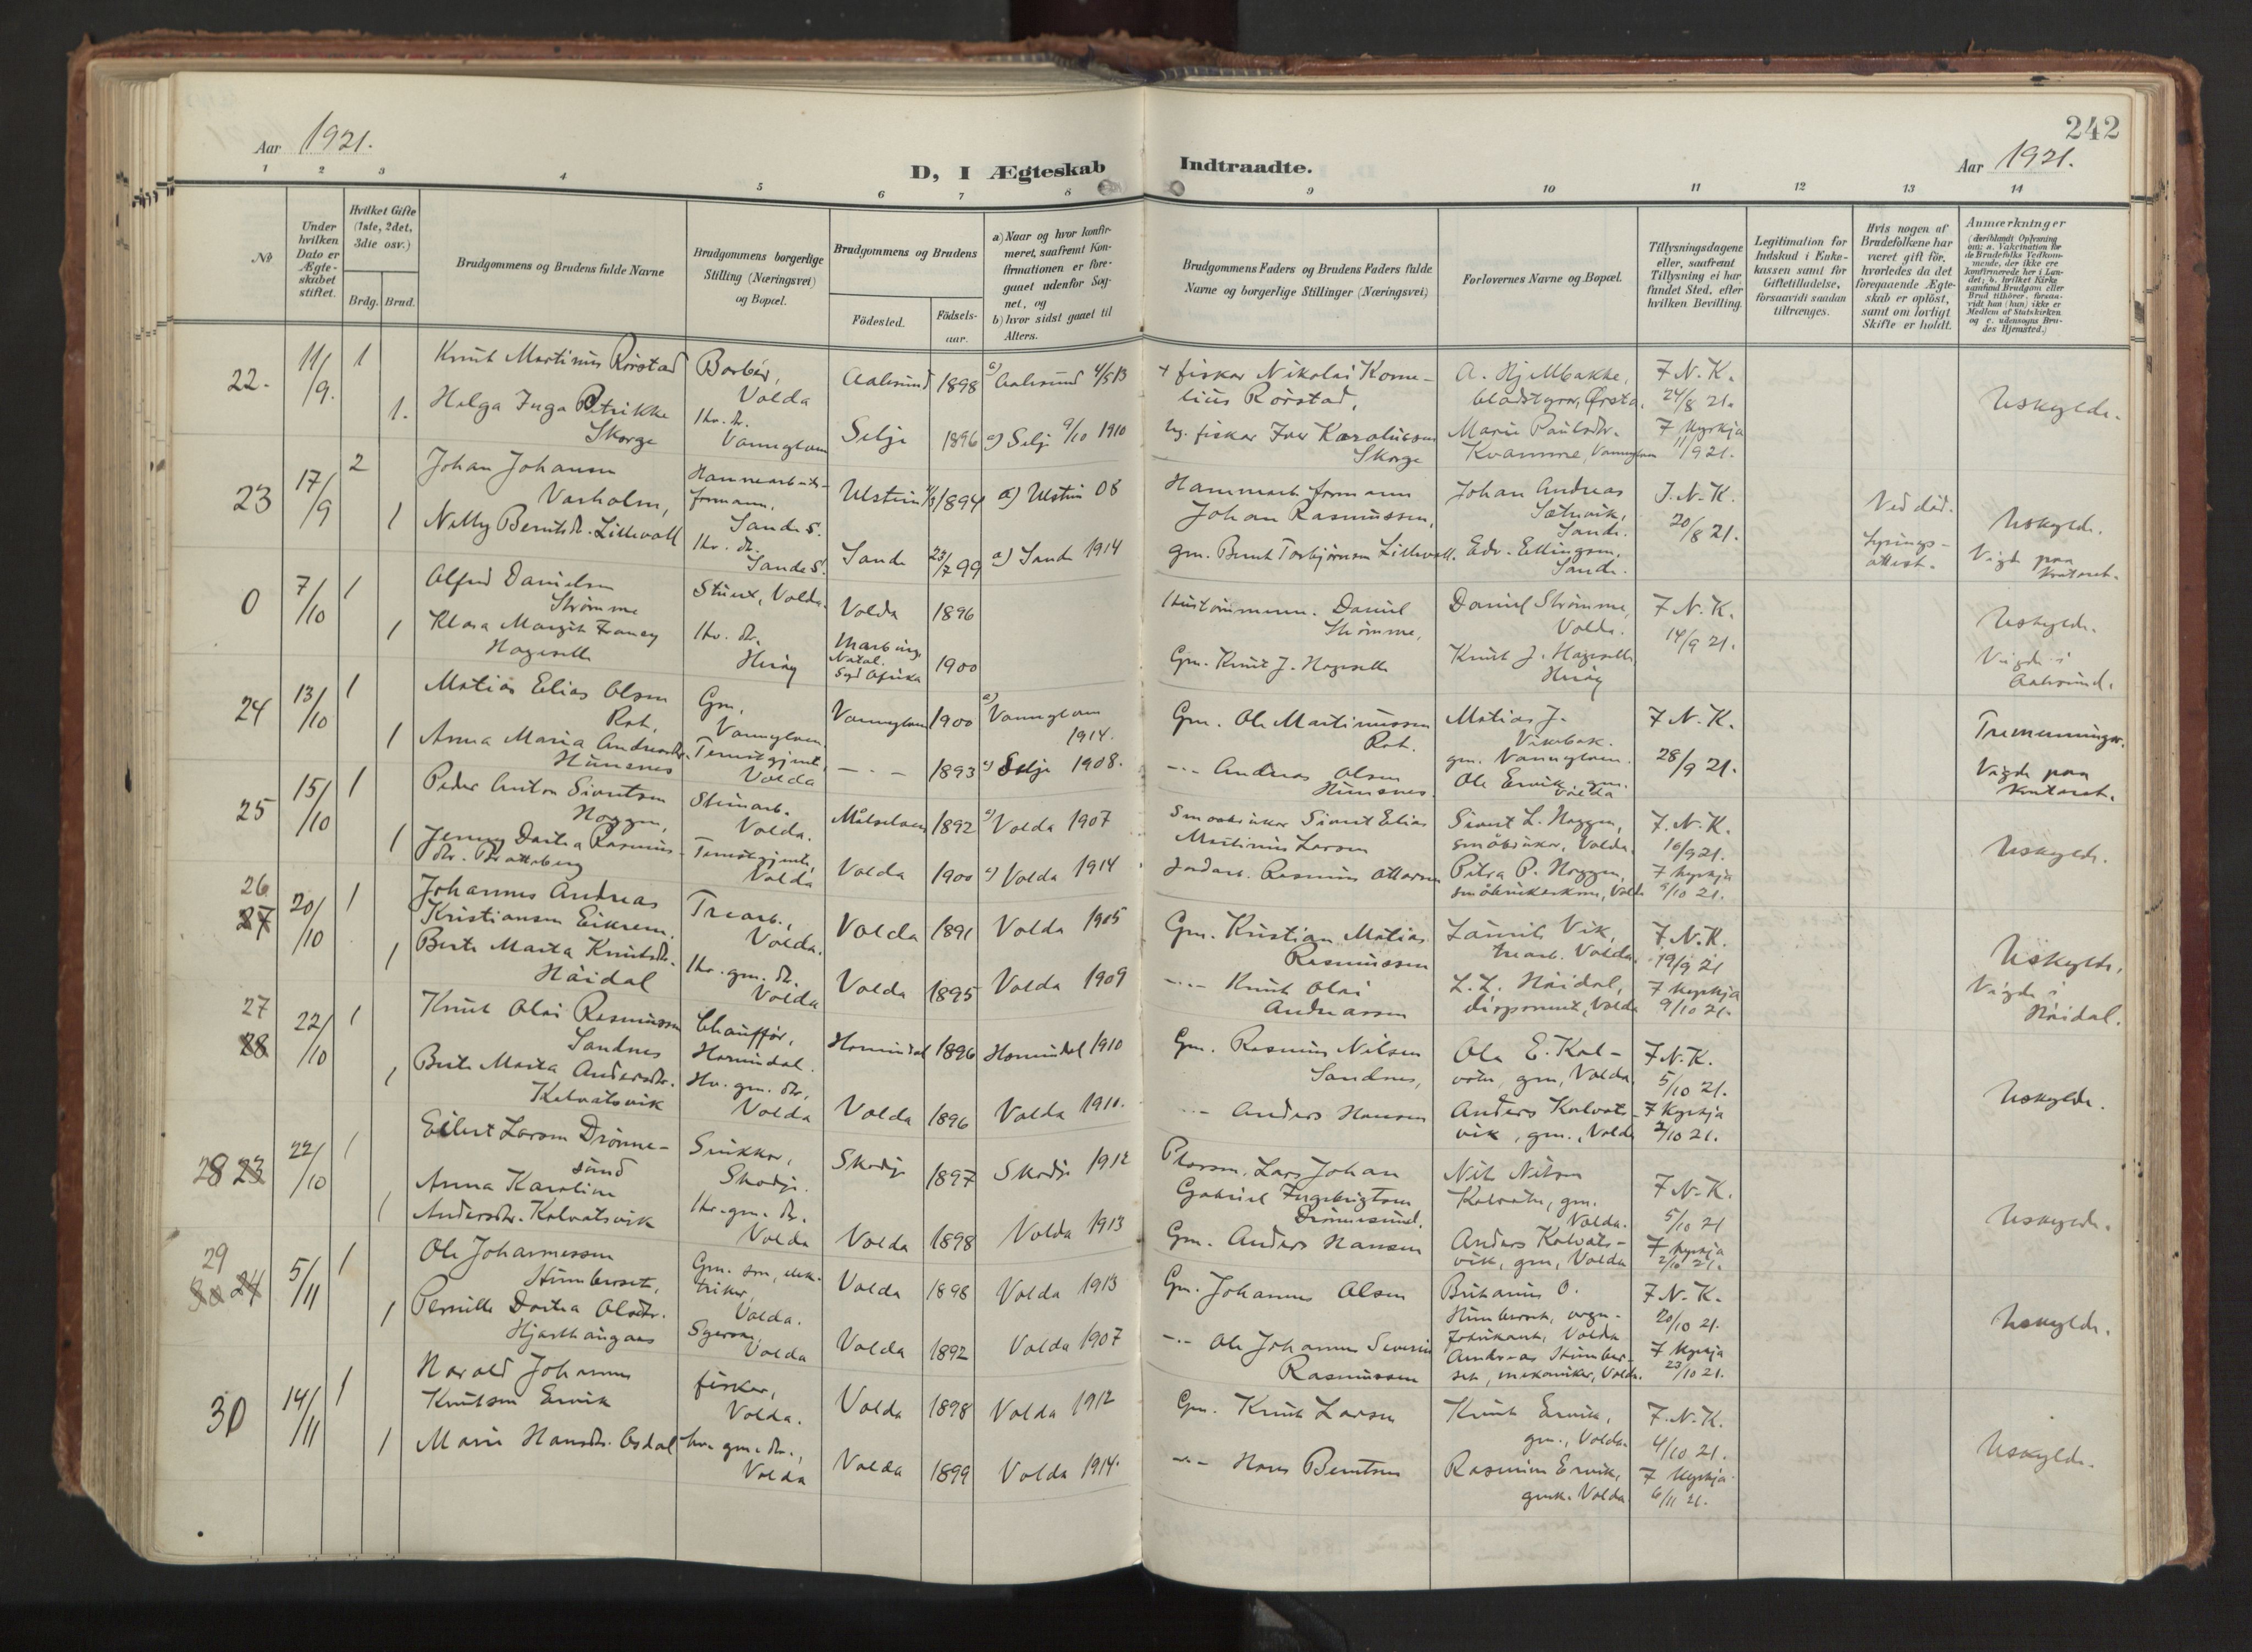 242
Aar 1921.
D, I Ægteskab Indtraadte.
Aar 1921.
1 2 3 4 5 6 7 8 9 10 11 12 13 14
No
Under hvilken Dato er Ægte-skabet stiftet.
Hvilket Gifte (1ste, 2det, 3die osv.)
Brdg. Brud.
Brudgommens og Brudens fulde Navne
Brudgommens borgerlige Stilling (Næringsvei) og Bopæl.
Brudgommens og Brudens
Födested. Födsels-aar.
a) Naar og hvor konfir-meret, saafremt Kon-firmationen er fore-gaaet udenfor Sog-net, og
b) hvor sidst gaaet til Alters.
Brudgommens Faders og Brudens Faders fulde Navne og borgerlige Stillinger (Næringsvei)
Forlovernes Navne og Bopæl.
Tillysningsdagene eller, saafremt Tillysning ei har fundet Sted, efter hvilken Bevilling.
Legitimation for Indskud i Enke-kassen samt for Giftetilladelse, forsaavidt saadan tiltrænges.
Hvis nogen af Brudefolkene har været gift för, hvorledes da det foregaaende Ægte-skab er oplöst, samt om lovligt Skifte er holdt.
Anmærkninger
(deriblandt Oplysning om: a. Vakcination for de Brudefolks Vedkom-mende, der ikke ere konfirmerede her i Lan-det; b. hvilket Kirke samfund Brudgom eller Brud tilhörer, forsaa-vidt hun (han) ikke er Medlem af Statskirken og c. udensogns Bru-des Hjemsted.)
22. 11/9. 1 Knut Martinus Rörstad Barbér, Volda Aalesund 1898 a) Aalesund 4/5 13 + fisker Nikolai Korne-lius Rörstad, A. Hjellbakke, bladstyrar, Ørsta. F. N. K. 24/8 21. Uskylde.
1. Helga Inga Petrikke Skorge Hv. dr. Vannylven Selje 1896 a) Selje 9/10 1910 fisker Iver Karolussen Skorge Marie Paulsdtr. Kvamme, Vannylven F Kyrkja 11/9 21.
23 17/9 2 Johan Johansen Varholm, Hamnearb.- formann, Sande S. Ulstein 1894 a) Ulstein 08 Hamnearb. formann Johan Rasmussen, Johan Andreas Sætrevik, Sande. F. N. K. 20/8 21. Ved död. Uskylde.
1 Nelly Berntsdtr. Littlevoll Hv. dr. Sande S. Sande 23/7 99 a) Sande 1914 Gm. Bernt Torbjørnsen Edv. Ellingsen. Sande. attest. Vigde paa kontoret.
0 7/10 1 Alfred Danielsen Strømme Stuert, Volda. Volda 1896 Daniel Strømme, Daniel Strømme, Volda. F. N. K. 14/9 21. Uskylde.
1 Klara Margit Hageselle Hv. dr. Herøy Natal. Syd Afrika 1900 Gm. Knut J. Hageselle Knut J. Hageselle Herøy Vigde i Aalesund.
24 13/10 1 Matias Elias Olsen Rot, Gm, Vannylven. Vannylven 1900 a) Vannylven 1914. Gm. Ole Martinussen Rot. Matias J. Vikebak. gm. Vannylven. F. N. K. 28/9 21. Tremenninger.
1 Anna Maria Andreasdtr. Hunsnes Tenestgjente, Volda – · – 1893 a) Selje 1908. – · – Andreas Olsen Hunsnes. Ole Ervik gm. Volda Vigde paa kontoret.
25 15/10 1 Peder Anton Sivertsen Heggen, Steinarb. Volda. Målselven 1892 a) Volda 1907 Småbrukar Sivert Elias Martinus Larsen Sivert L. Heggen, småbrukar, Volda. F. N. K. 16/9 21. Uskylde.
1 Jenny Dortea Rasmus-dtr. Bratteberg Tenestgjente, Volda Volda 1900 a) Volda 1914 Jordarb. Rasmus Ottarsen Petra P. Heggen, småbrukarkone, Volda F Kyrkja 9/10 21.
26 27 20/10 1 Johannes Andreas Kristiansen Eikrem. Trearb., Volda. Volda 1891 Volda 1905 Gm. Kristian Matias Rasmussen Laurits Vik, trearb. Volda. F. N. K. 19/9 21 Uskylde.
1 Berte Marta Knutsdtr. Håidal Hv. gm. dr. Volda Volda 1895 Volda 1909 – · – Knut Olai Andreassen L. L. Håidal, disponent, Volda F Kyrkja 9/10 21. Vigde i Håidal.
27 28 22/10 1 Knut Olai Rasmussen Sandnes Chauffør, Hornindal. Hornindal 1896 Hornindal 1910 Gm. Rasmus Nilsen Sandnes, Ole E. Kal-vatn, gm, Volda. F. N. K. 5/10 21. Uskylde.
1 Berte Marta Andersdtr. Kalvatsvik Hv. gm. dtr, Volda Volda 1896 Volda 1911. – · – Anders Hansen Anders Kalvats-vik, gm., Volda F Kyrkja 2/10 21.
28 23 22/10 1 Eilert Larsen Drönne-sund Snikkar, Skodje. Skodje 1897 Skodje 1912 Lars Johan Gabriel Ingebrigtsen Drönnesund. Nils Nilsen Kalvatn, gm. Volda. F. N. K. 5/10 21 Uskylde.
1 Anna Karoline Andersdtr. Kalvatsvik Hv. gm. dr. Volda Volda 1898 Volda 1913 Gm. Anders Hansen Anders Kalvats-vik, gm, Volda F Kyrkja 2/10 21.
29 24 5/11 1 Ole Johannessen Humberset, Gm. son, elek-triker, Volda. Volda 1898 Volda 1913 Gm. Johannes Olsen O. Humberset, vogn-fabrikant, Volda F. N. K. 20/10 21. Uskylde.
1 Pernille Dortea Olsdtr. Hjorthaugaas Volda Volda 1892 Volda 1907 – · – Ole Johannes Severin Rasmussen Andreas Humber-set, mekaniker, Volda. F Kyrkja 23/10 21.
30 14/11 1 Harald Johannes Knutsen Ervik fisker, Volda. Volda 1898 Volda 1912 Gm. Knut Larsen Knut Ervik, gm., Volda. F. N. K. 4/10 21. Uskylde.
1 Marie Hansdtr. Osdal hv. gm. dr., Volda Volda 1899 Volda 1914. – · – Hans Berntsen Rasmus Ervik, gmk. Volda. F Kyrkja 6/11 21.